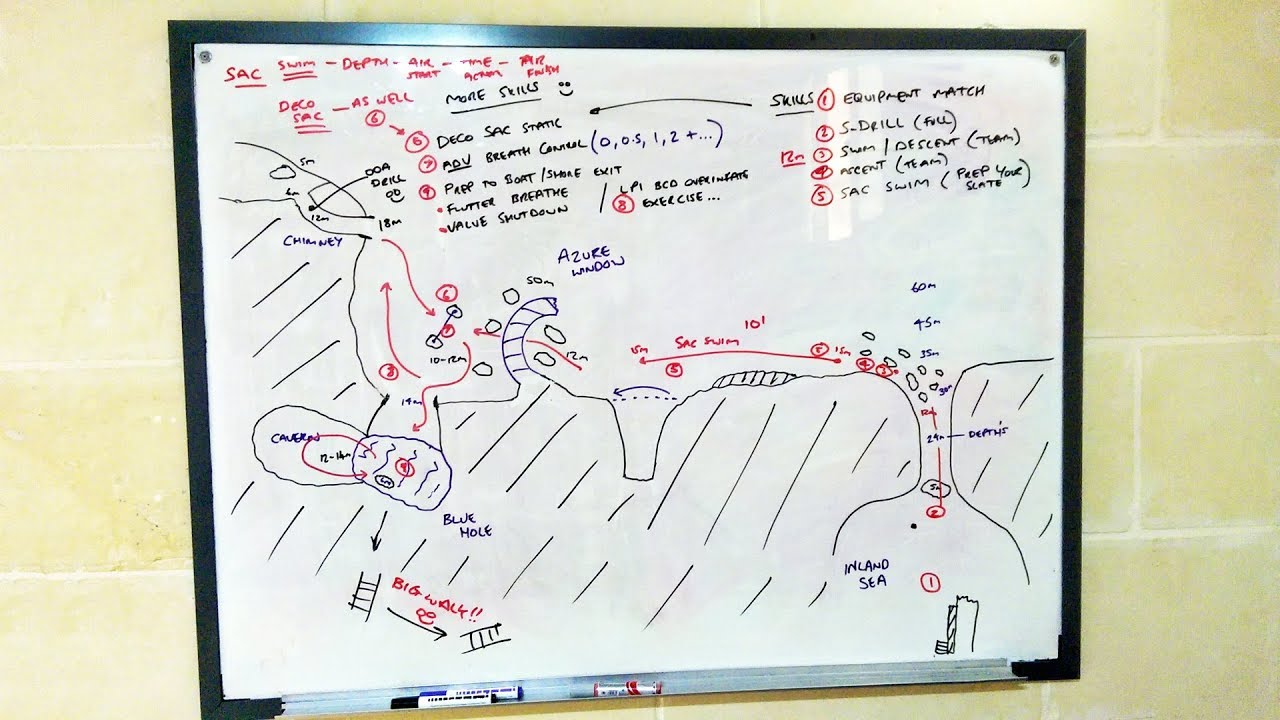 SAC SWIM - DEPTH - AIR START - TIME ACTUAL - AIR FINISH
DECO SAC - AS WELL
6
MORE SKILLS
6 DECO SAC STATIC
7 ADV BREATH CONTROL (0, 0.5, 1, 2 + ...)
9 PREP TO BOAT/SHORE EXIT
• FLUTTER BREATHE
• VALVE SHUTDOWN
/ LPI BCD OVERINFLATE
8 EXERCISE...
SKILLS 1 EQUIPMENT MATCH
2 S-DRILL (FULL)
12m 3 SWIM / DESCENT (TEAM)
4 ASCENT (TEAM)
5 SAC SWIM (PREP YOUR SLATE)
5m
6m
OOA DRILL
12m
18m
CHIMNEY
AZURE WINDOW
50m
6
7
10-12m
12m
8
14m
15m
SAC SWIM
10'
5
5
15m
4
3
60m
45m
35m
30m
12m
24m
DEPTH'S
5m
2
CAVERN
12-14m
9
BLUE HOLE
INLAND SEA
1
BIG WALK!!